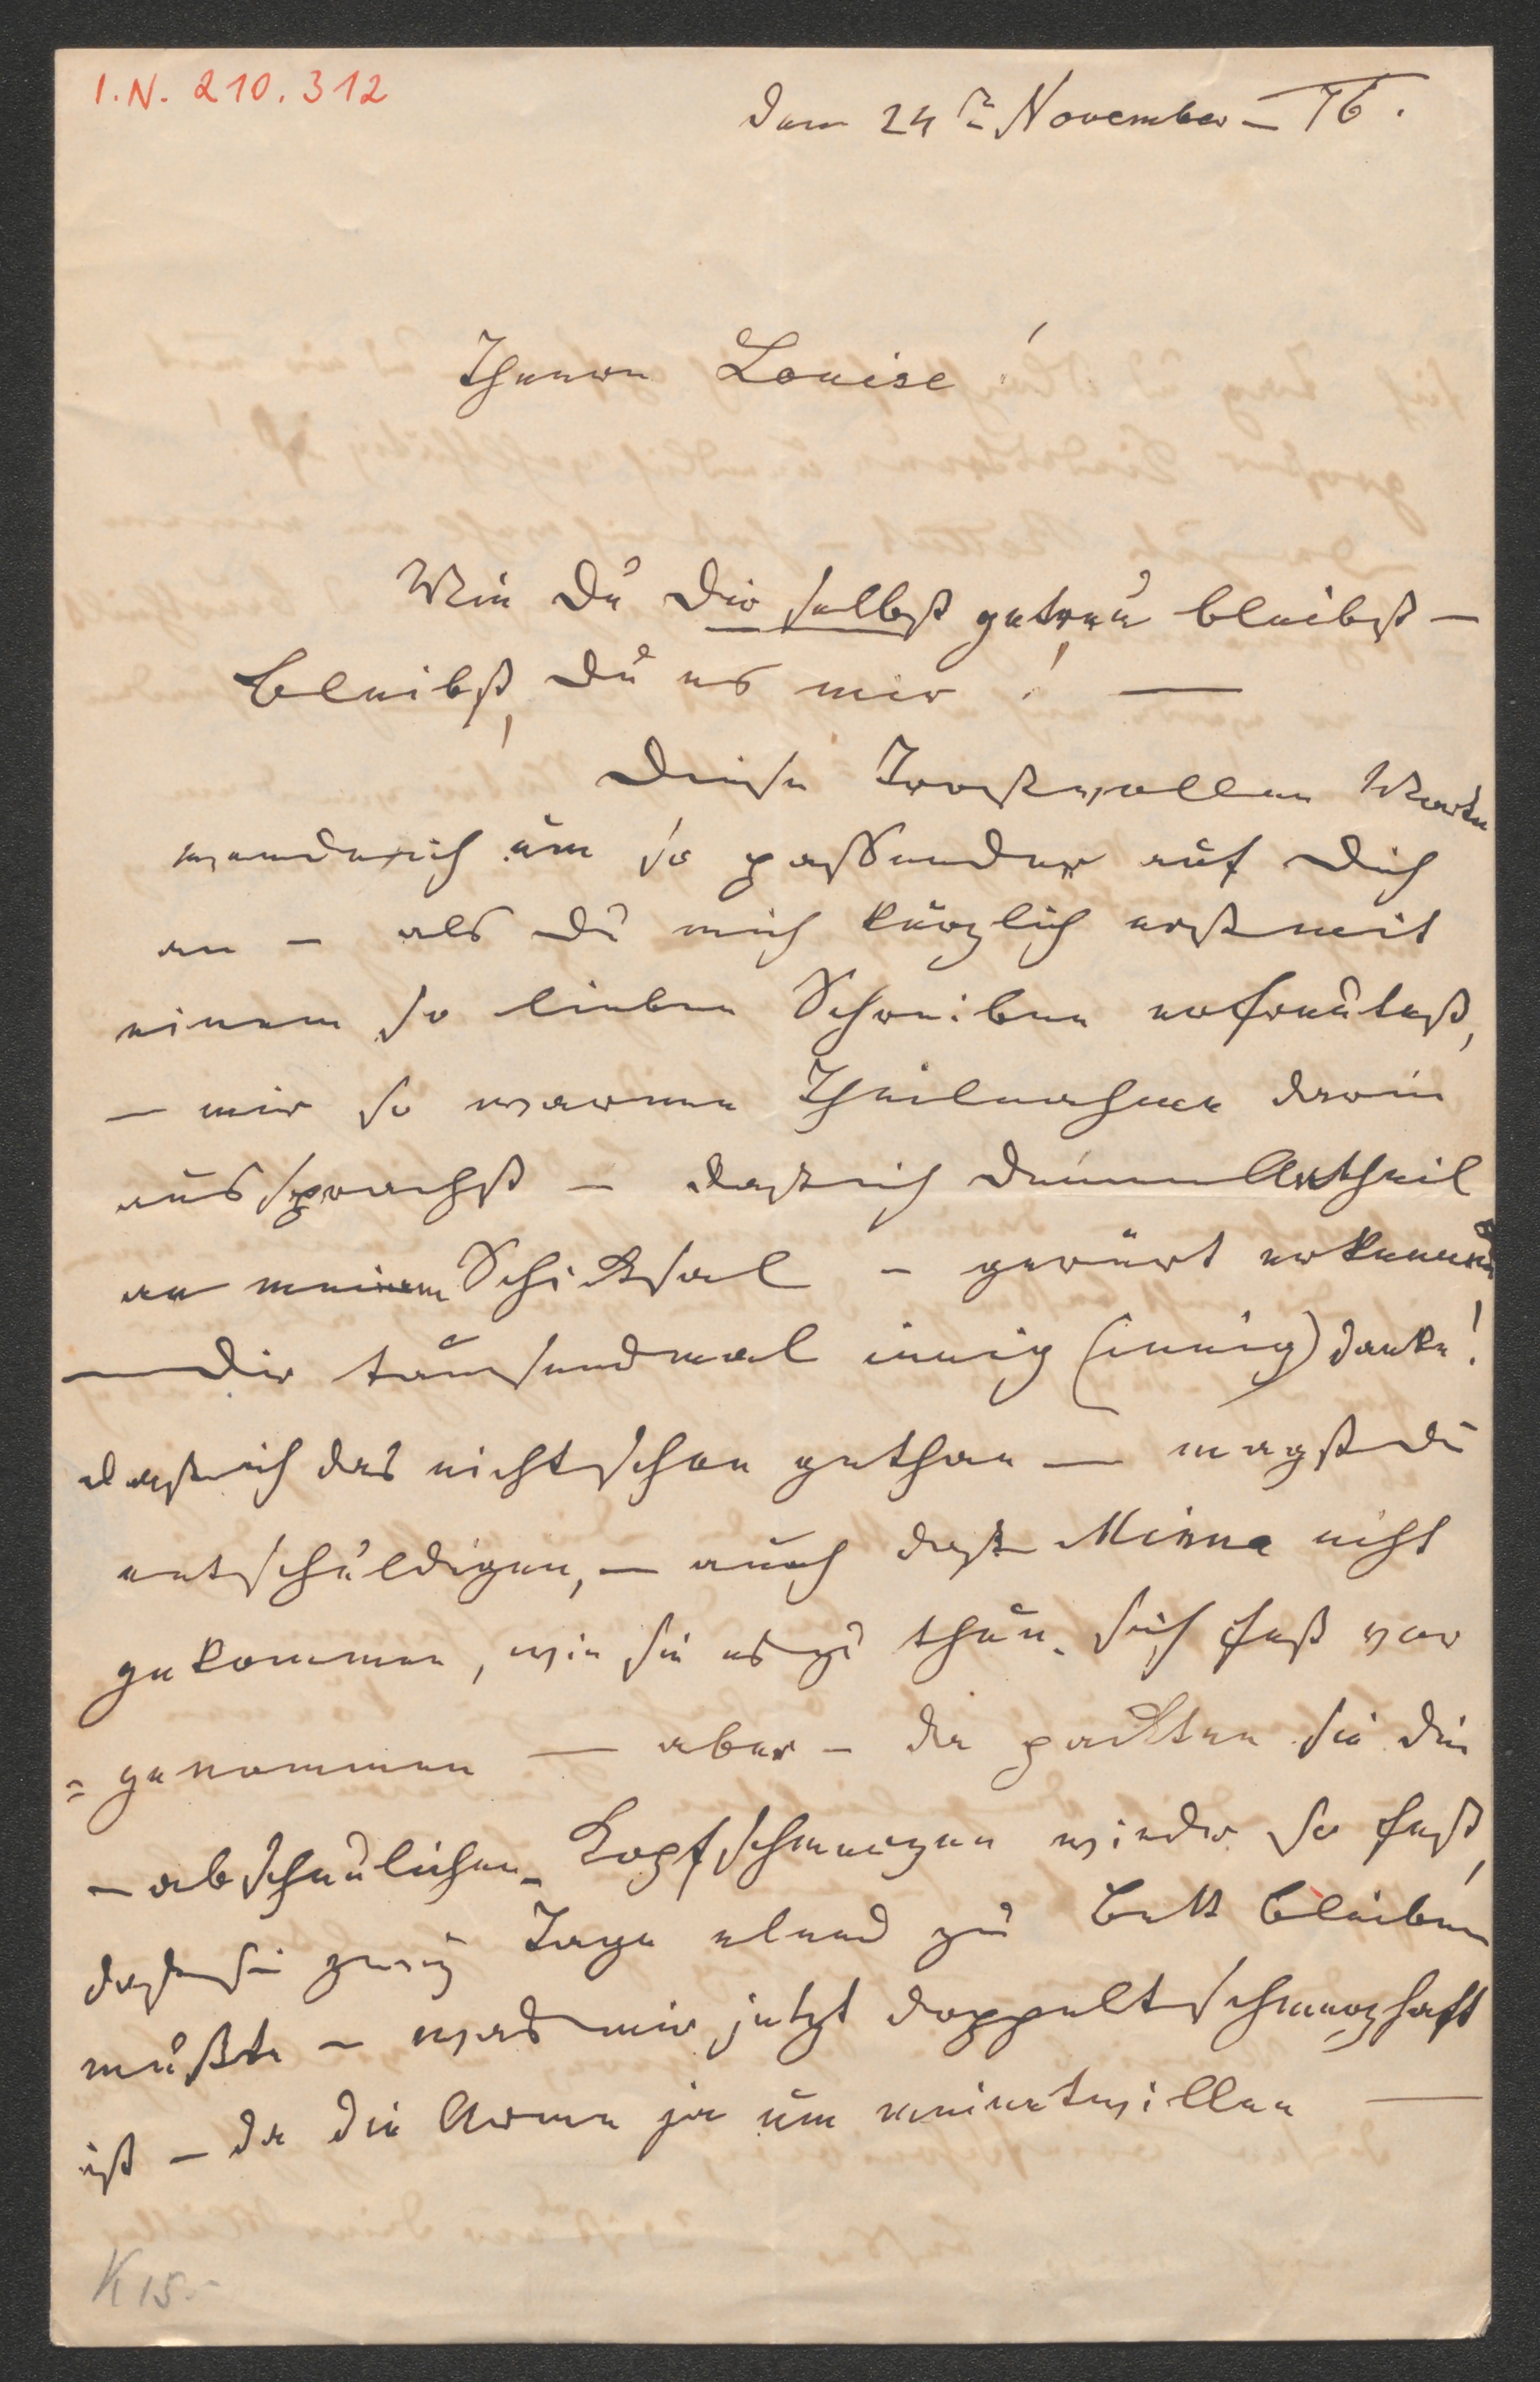 I.N. 210.312
Den 24ten November – 76.
Theure Louise!
Wie Du Dir selbst getreu bleibst –
bleibst Du es mir! —
Diese Trostvollen Worte
wende ich um so passender auf Dich
an – als Du mich kürzlich erst mit
einem so lieben Schreiben erfreutest,
– mir so warme Theilnahme darin
aussprachst – daß ich Deinen Antheil
an meinem Schiksal – gerürt erkennend
– Dir tausendmal innig (innig) danke!
daß ich das nicht schon gethan — magst Du
entschuldigen, – auch daß Minna nicht
gekommen, wie sie es zu thun sich fest vor
= genommen — aber – da packten sie die
– abscheulichen – Kopfschmerzen wieder so fest,
daß sie zwey Tage elend zu Bett bleiben
mußte – was mir jetzt doppelt schmerzhaft
ist – da die Arme ja um meinetwillen —
K 15.-